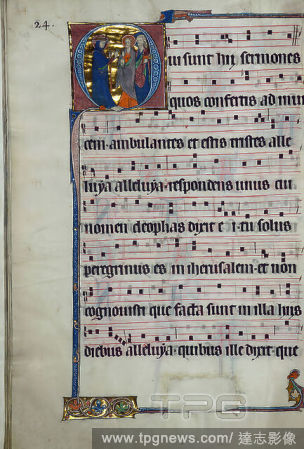 24.
Qui sunt hii sermones
quos confertis ad inui
cem ambulantes et estis tristes alle
luya alleluya · respondens unus cui
nomen cleophas dixit e i · tu solus
peregrinus es in iherusalem et non
cognouisti que facta sunt in illa hiis
diebus alleluya · quibus ille dixit · que
TPG
www.tpgnews.com/達志影像